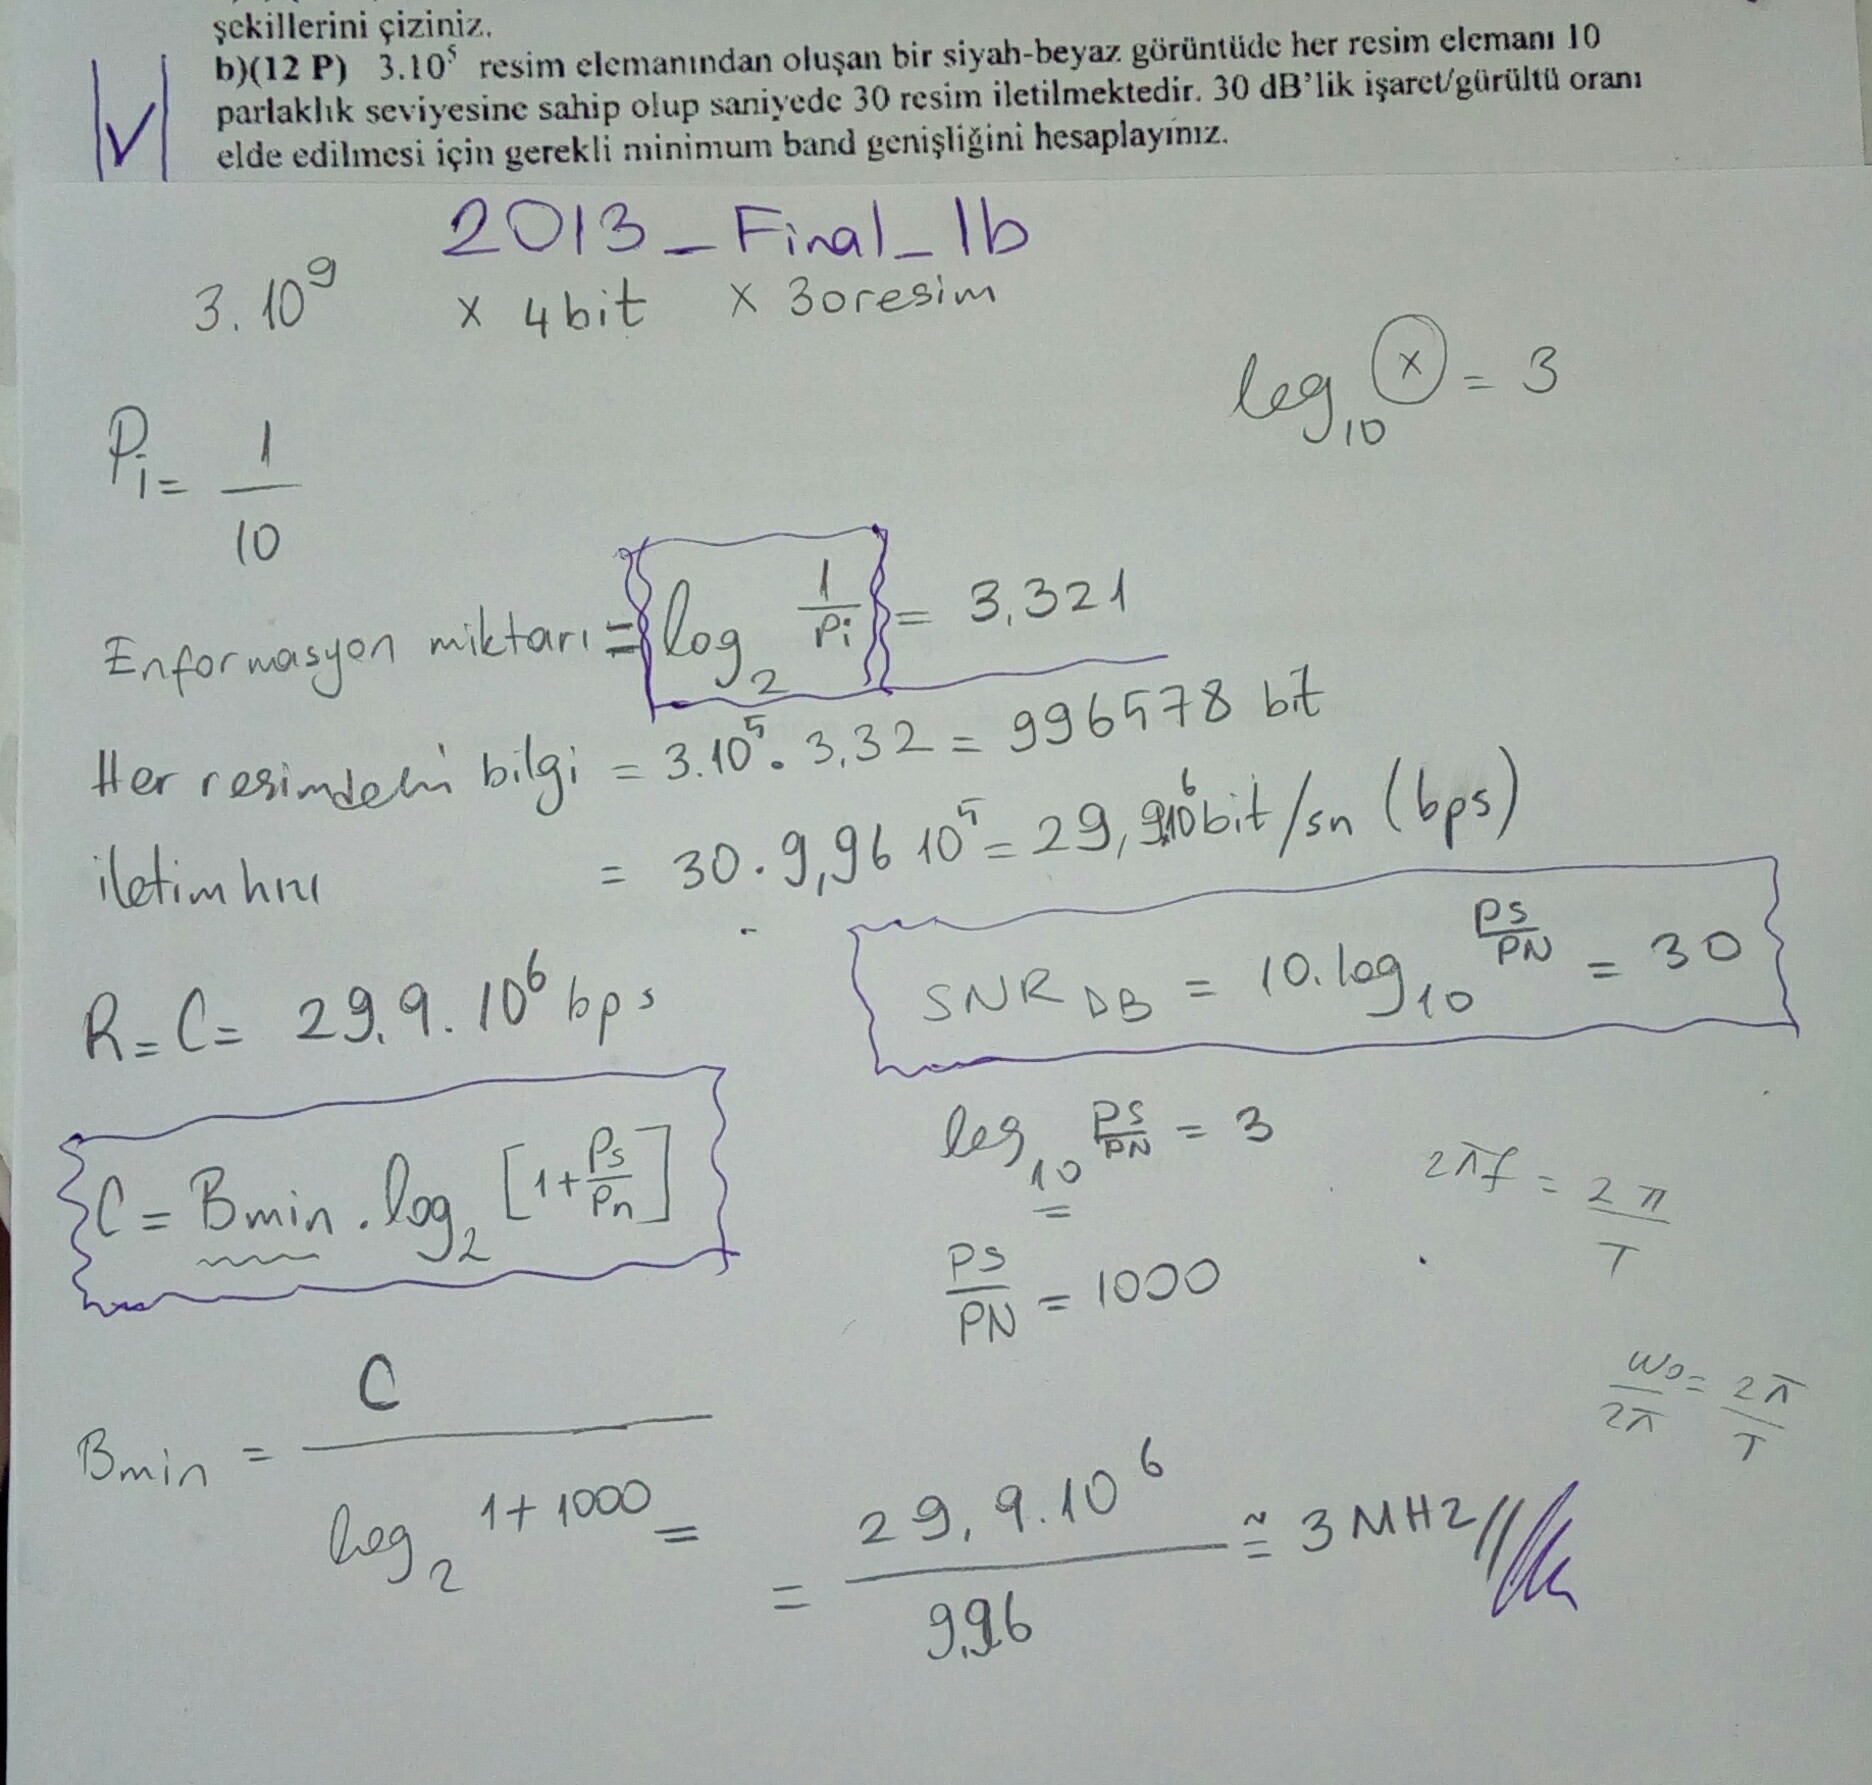 şekillerini çiziniz.
b)(12 P) 3.10⁵ resim elemanından oluşan bir siyah-beyaz görüntüde her resim elemanı 10
parlaklık seviyesine sahip olup saniyede 30 resim iletilmektedir. 30 dB'lik işaret/gürültü oranı
elde edilmesi için gerekli minimum band genişliğini hesaplayınız.
2013_Final_1b
3.10⁹ x 4bit x 30resim
log₁₀ (x) = 3
Pi = 1/10
Enformasyon miktarı = log₂ 1/Pi = 3,321
Her resimdeki bilgi = 3.10⁵. 3,32 = 996578 bit
iletim hızı = 30.9,96 10⁵ = 29,9.10⁶ bit/sn (bps)
R=C= 29,9.10⁶ bps
SNR DB = 10.log₁₀ PS/PN = 30
C = Bmin.log₂ [1+Ps/Pn]
log₁₀ PS/PN = 3
2πf = 2π/T
PS/PN = 1000
w₀/2π = 2π/T
Bmin = C / log₂ 1+1000 =
= 29,9.10⁶ / 9,96 ≅ 3 MHz //